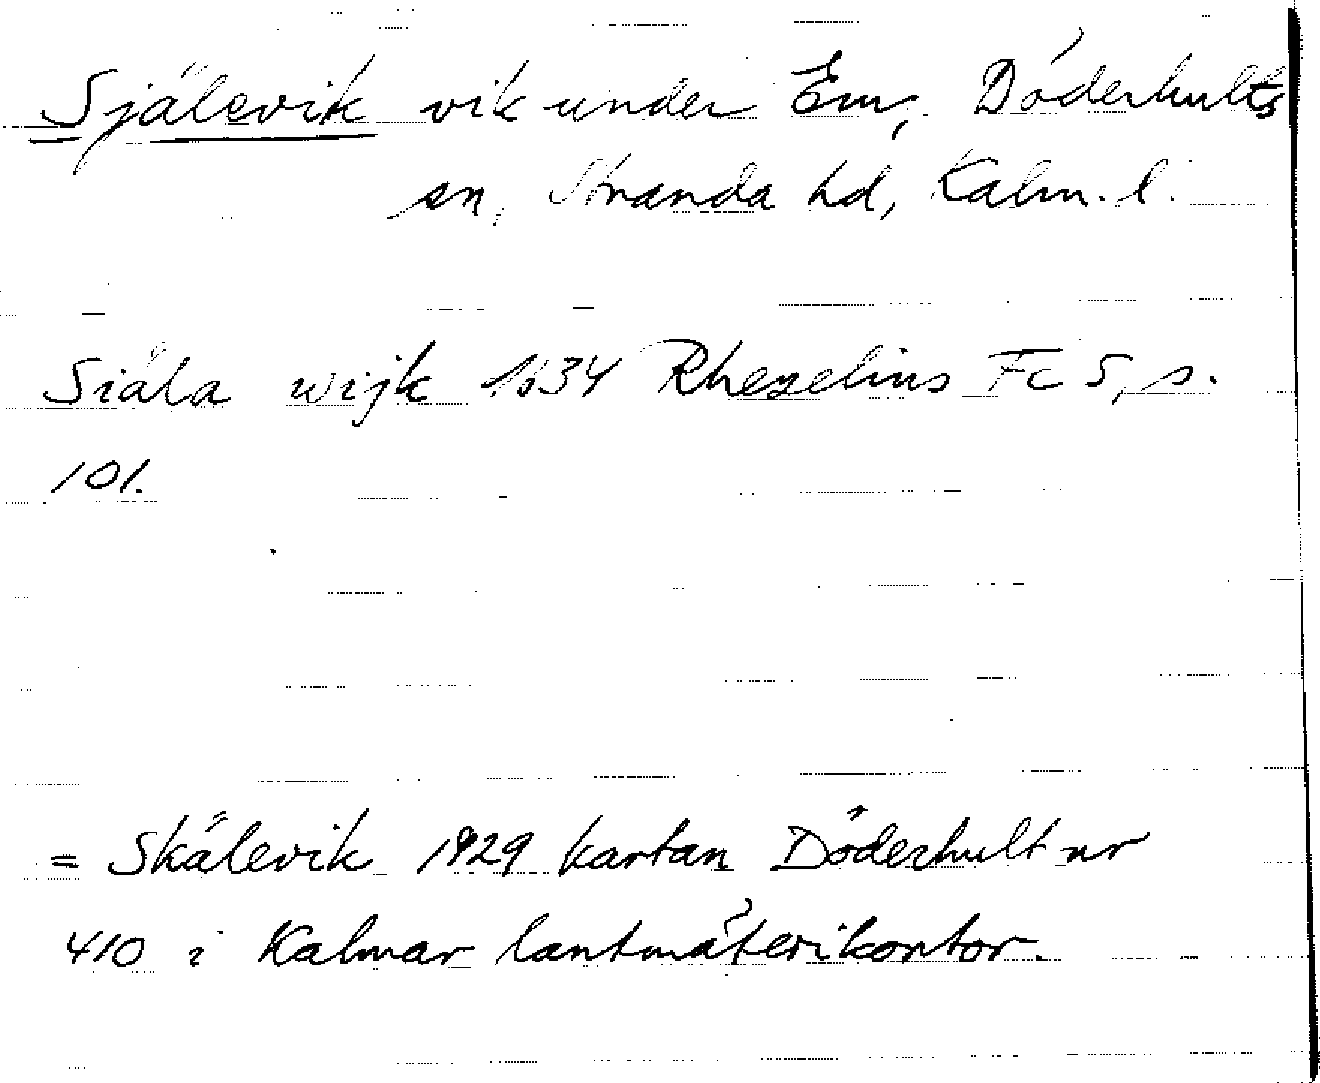 Själevik vik under Em, Döderhults
sn, Stranda hd, Kalm. l.
Siäla wijk 1634 Rhezelius Fc 5, s.
101.
= Skälevik 1929 kartan Döderhult nr
410 i Kalmar lantmäterikontor.